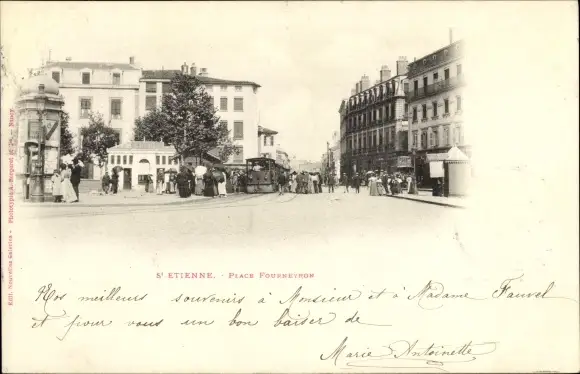 St ETIENNE. - PLACE FOURNEYRON
Nos meilleurs souvenirs à Monsieur et à Madame Fauvel
et pour vous un bon baiser de
Marie Antoinette
Edit. Nouvelles Galeries - Phototypie A. Bergeret & Cie - Nancy